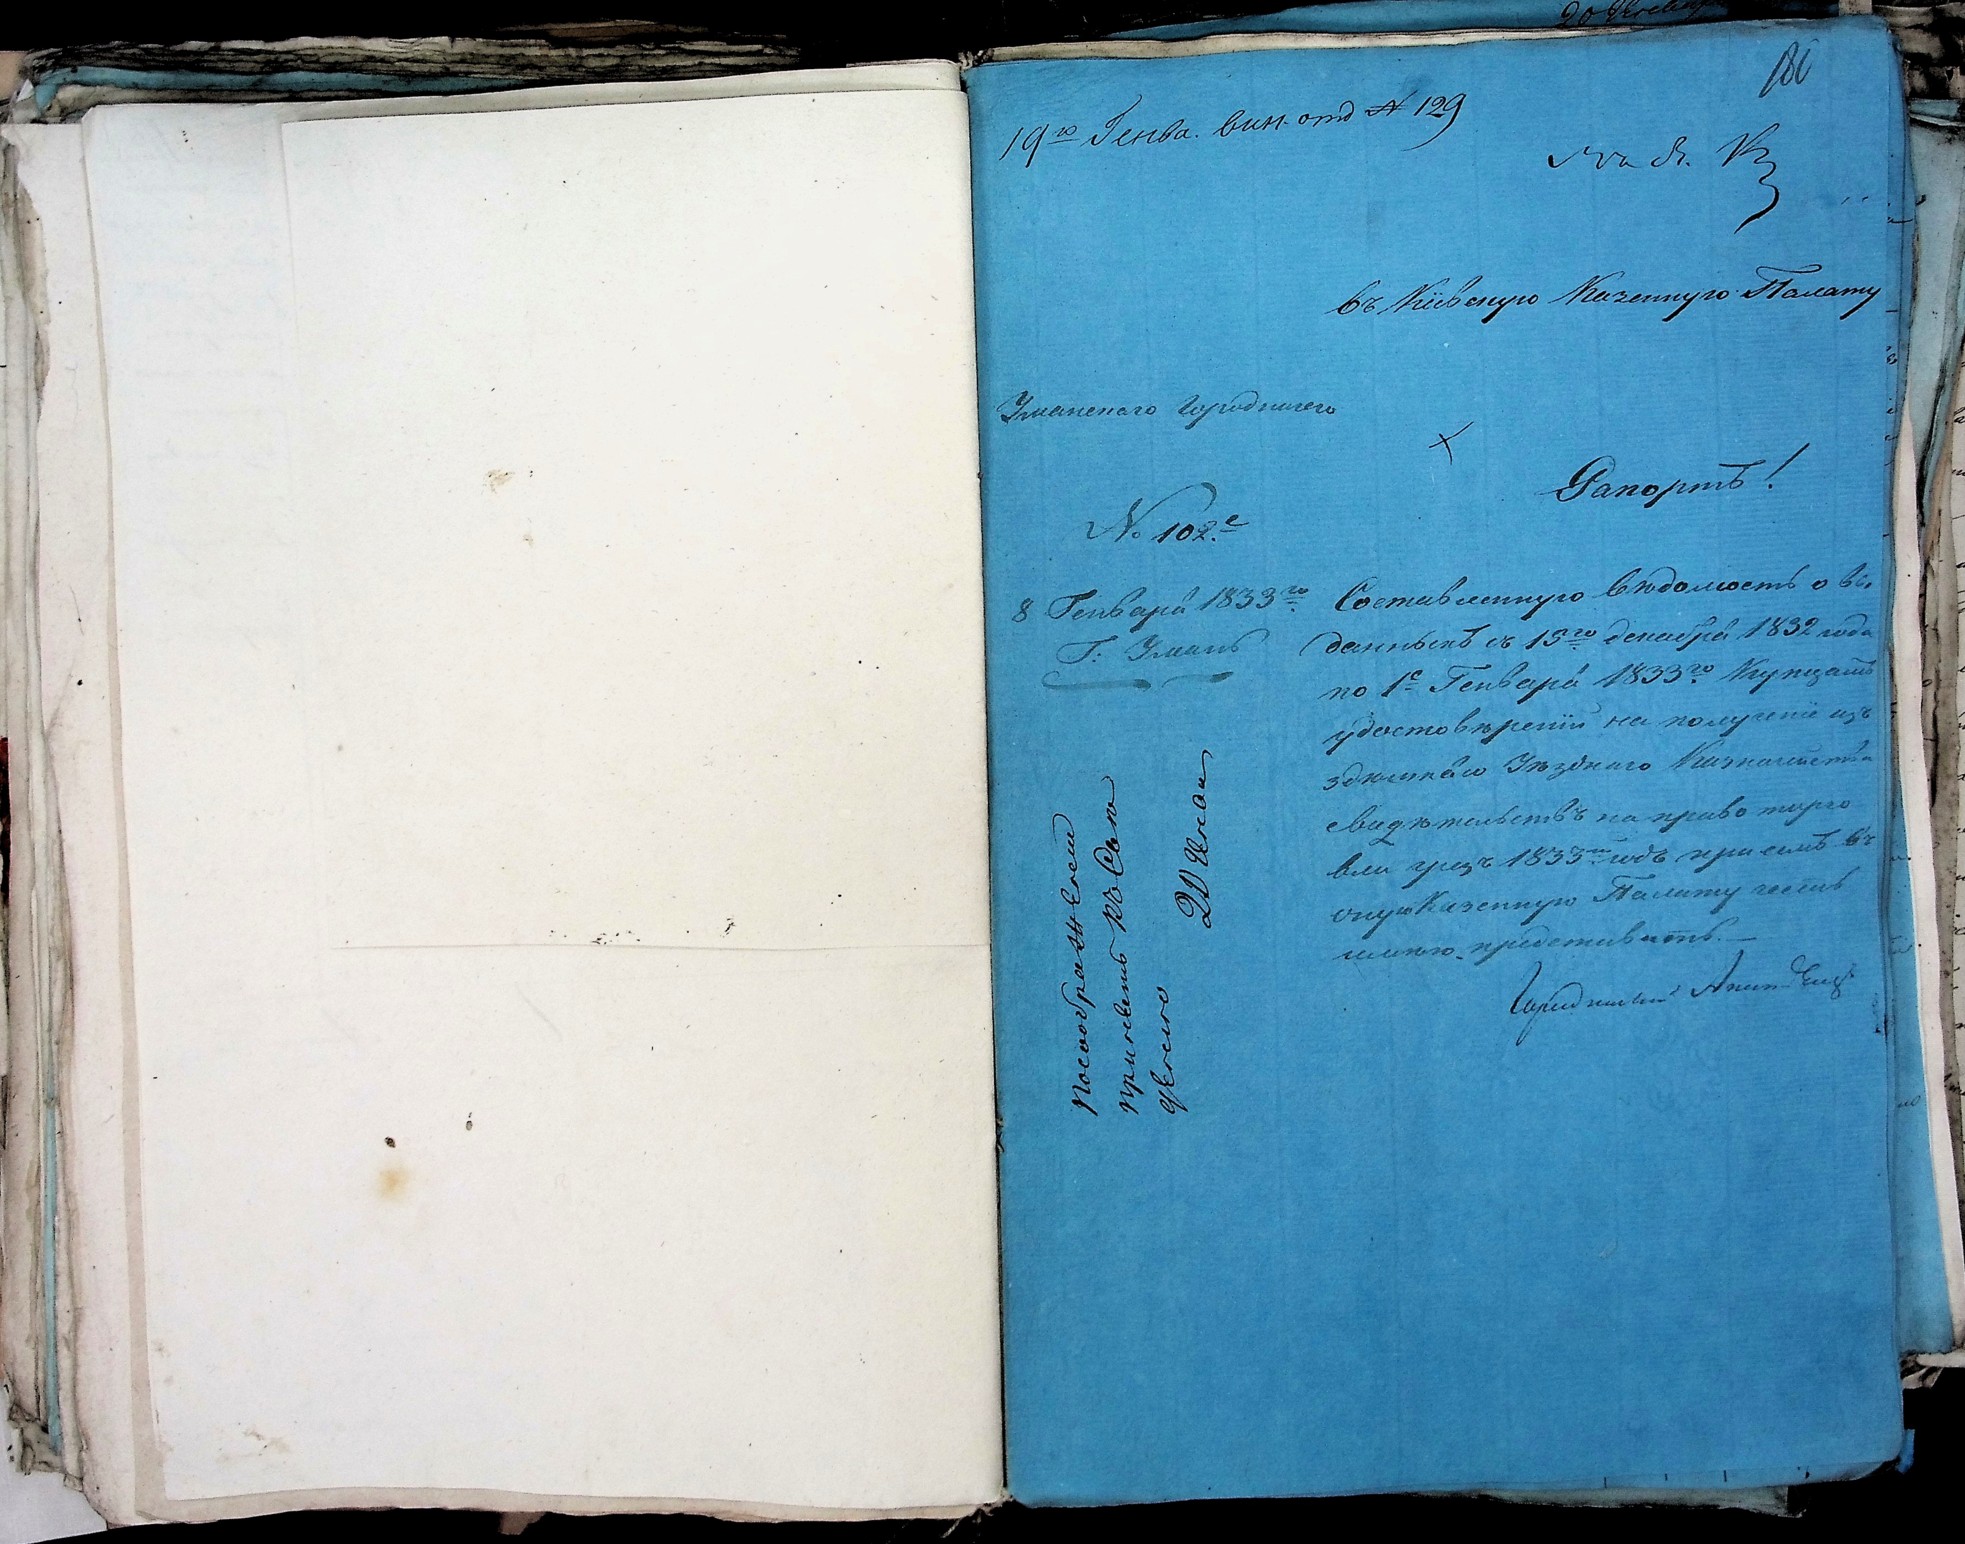 19го Генва. вин. отд № 129
Въ Кіевскую Казенную Палату
Уманскаго Городничего
Рапортъ!
№ 102.е
8 Генваря 1833го
Г: Умань
Составленную ведомость о вы
данныхъ съ 15го декабря 1832 года
по 1е Генваря 1833го Купцамъ
удостоверѣній на полученіе изъ
здешнего Уезднаго Казначейства
свидетельствъ на право торго
вли чрезъ 1833й годъ при семъ въ
оную Казенную Палату честь
имею представить.—
Городничій
По соображеніи